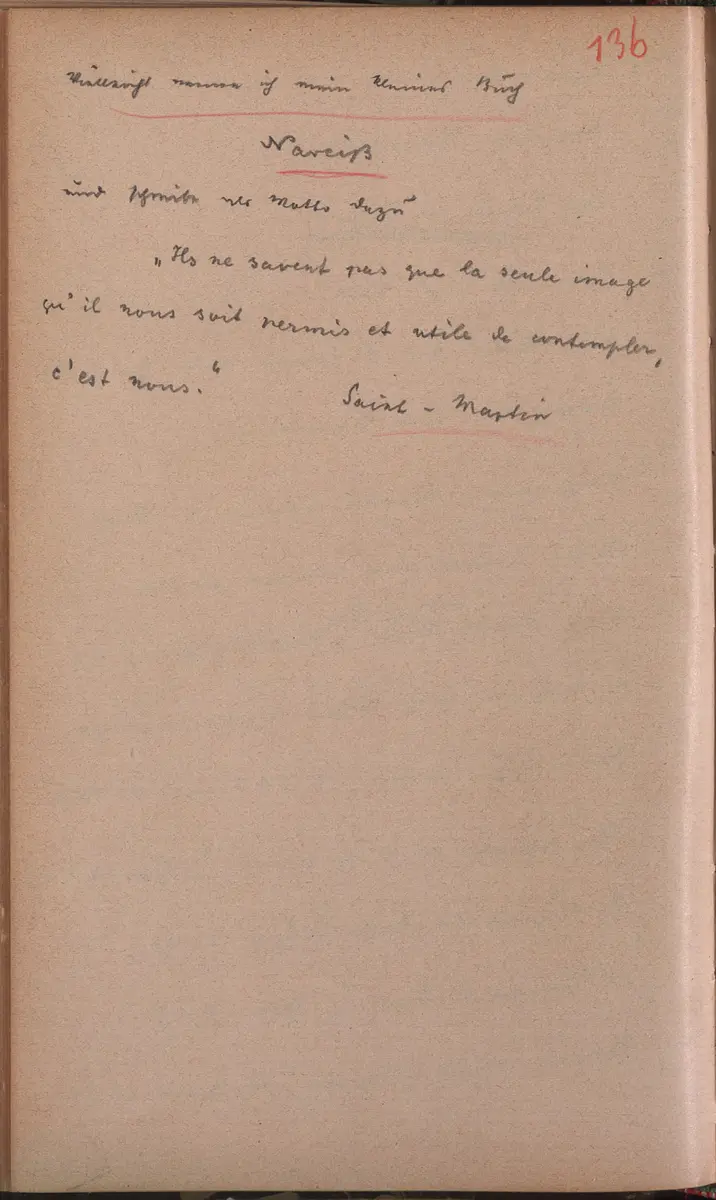 136
Vielleicht nenne ich mein kleines Buch
Narciß
und schreibe als Motto dazu
„Ils ne savent pas que la seule image
qu'il nous soit permis et utile de contempler,
c'est nous.“
Saint-Martin